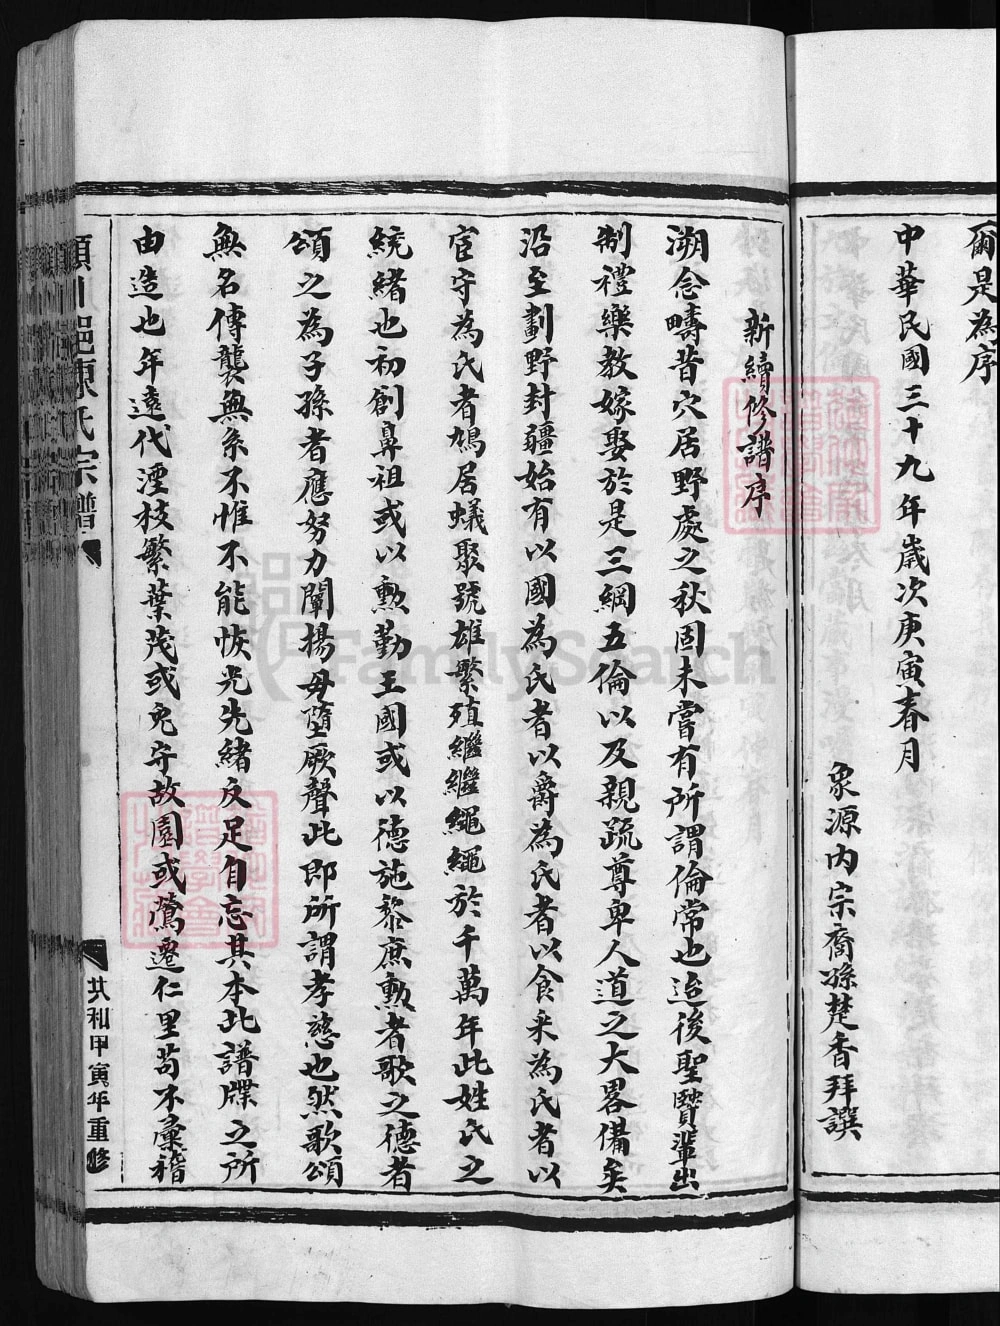 爾是為序
中華民國三十九年歲次庚寅春月
象源內宗裔孫楚香拜譔
新續修譜序
溯念疇昔穴居野處之秋固未嘗有所謂倫常也迨後聖賢輩出
制禮樂教嫁娶於是三綱五倫以及親疏尊卑人道之大畧備矣
沿至劃野封疆始有以國為氏者以爵為氏者以食采為氏者以
官守為氏者鳩居蟻聚號雄繁殖繼繼繩繩於千萬年此姓氏之
統緒也初創鼻祖或以勳勤王國或以德施黎庶勳者歌之德者
頌之為子孫者應努力闡揚毋墮厥聲此即所謂孝慈也然歌頌
無名傳襲無系不惟不能恢光先緒反足自忘其本此譜牒之所
由造也年遠代湮枝繁葉茂或克守故園或鶯遷仁里苟不彙稽
邑陳氏宗譜
共和甲寅年重修
FamilySearch